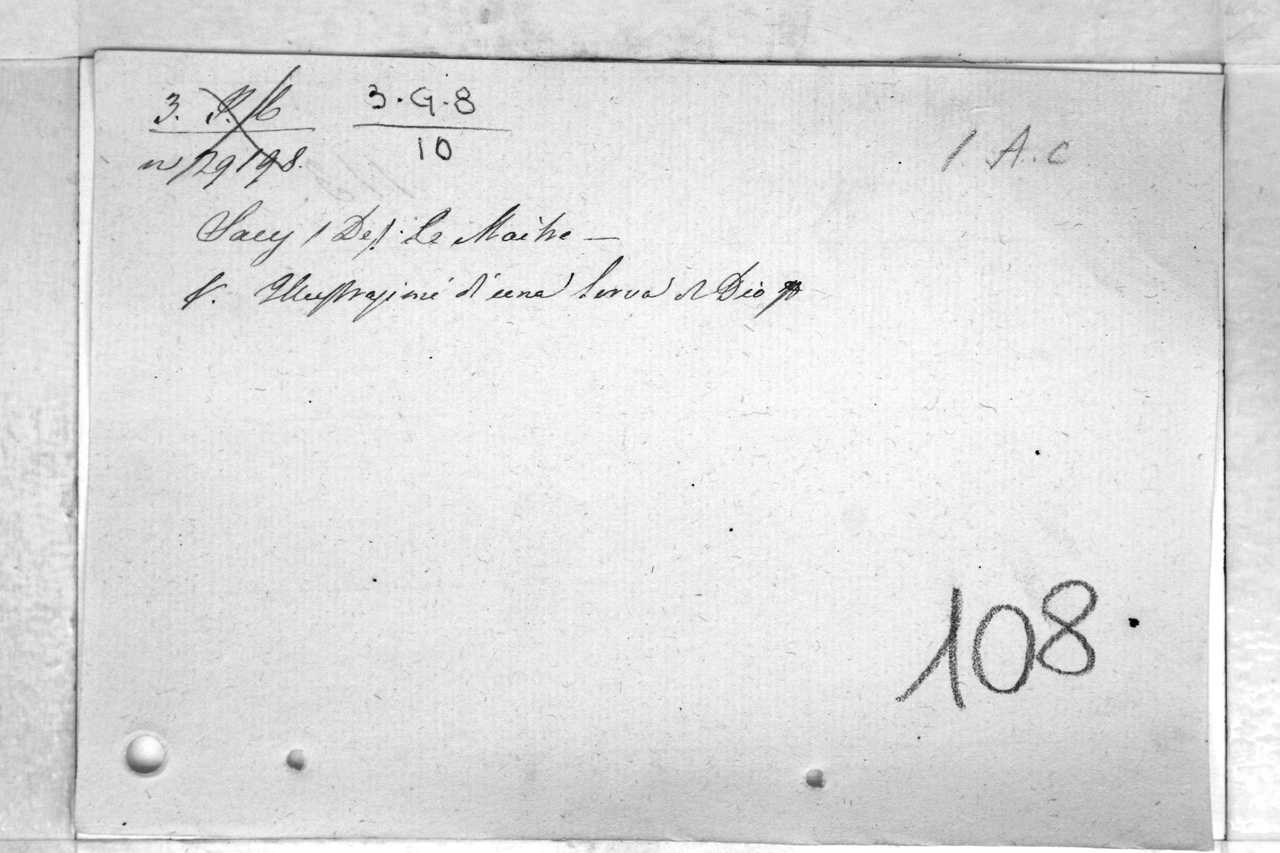 3. P. 16 3.G.8
n 29198. 10
1. A. C
Sacy (De) Le Maitre —
V. Illustrazioni d'una Serva di Dio
108